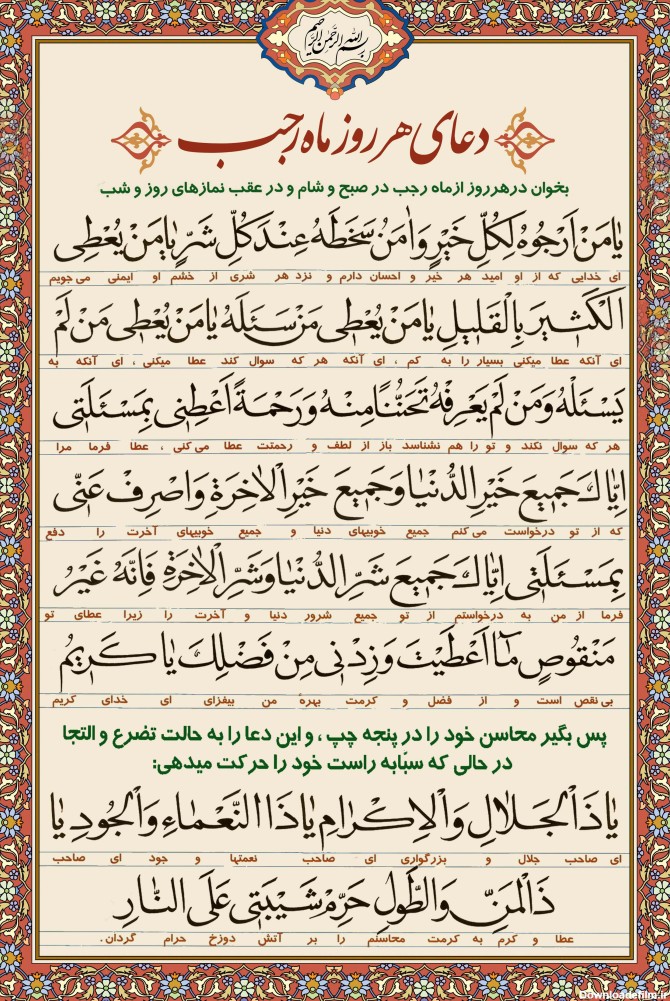 بسم الله الرحمن الرحیم
دعای هر روز ماه رجب
بخوان در هر روز از ماه رجب در صبح و شام و در عقب نمازهای روز و شب
یٰا مَنْ اَرْجُوهُ لِکُلِّ خَیْرٍ وَاٰمَنُ سَخَطَهُ عِنْدَ کُلِّ شَرٍّ یٰا مَنْ یُعْطِی
ای خدایی که از او امید هر خیر و احسان دارم و نزد هر شری از خشم او ایمنی می جویم
الْکَثیٖرَ بِالْقَلیٖلِ یٰا مَنْ یُعْطیٖ مَنْ سَئَلَهُ یٰا مَنْ یُعْطیٖ مَنْ لَمْ
ای آنکه عطا میکنی بسیار را به کم ، ای آنکه هر که سوال کند عطا میکنی ، ای آنکه به
یَسْئَلْهُ وَمَنْ لَمْ یَعْرِفْهُ تَحَنُّناً مِنْهُ وَرَحْمَةً اَعْطِنیٖ بِمَسْئَلَتیٖ
هر که سوال نکند و تو را هم نشناسد باز از لطف و رحمتت عطا می کنی ، عطا فرما مرا
اِیّٰاكَ جَمیٖعَ خَیْرِ الدُّنْیٰا وَجَمیٖعَ خَیْرِ الْاٰخِرَةِ وَاصْرِفْ عَنّیٖ
که از تو درخواست می کنم جمیع خوبیهای دنیا و جمیع خوبیهای آخرت را دفع
بِمَسْئَلَتیٖ اِیّٰاكَ جَمیٖعَ شَرِّ الدُّنْیٰا وَشَرِّ الْاٰخِرَةِ فَاِنَّهُ غَیْرُ
فرما از من به درخواستم از تو جمیع شرور دنیا و آخرت را زیرا عطای تو
مَنْقُوصٍ مٰا اَعْطَیْتَ وَزِدْنیٖ مِنْ فَضْلِكَ یٰا کَریٖمُ
بی نقص است و از فضل و کرمت بهرهٔ من بیفزای ای خدای کریم
پس بگیر محاسن خود را در پنجه چپ ، و این دعا را به حالت تضرع و التجا
در حالی که سبّابه راست خود را حرکت میدهی:
یٰا ذَا الْجَلاٰلِ وَالْاِکْرٰامِ یٰا ذَا النَّعْمٰاءِ وَالْجُودِ یٰا
ای صاحب جلال و بزرگواری ای صاحب نعمتها و جود ای صاحب
ذَا الْمَنِّ وَالطَّوْلِ حَرِّمْ شَیْبَتیٖ عَلَی النّٰارِ
عطا و کرم به کرمت محاسنم را بر آتش دوزخ حرام گردان.